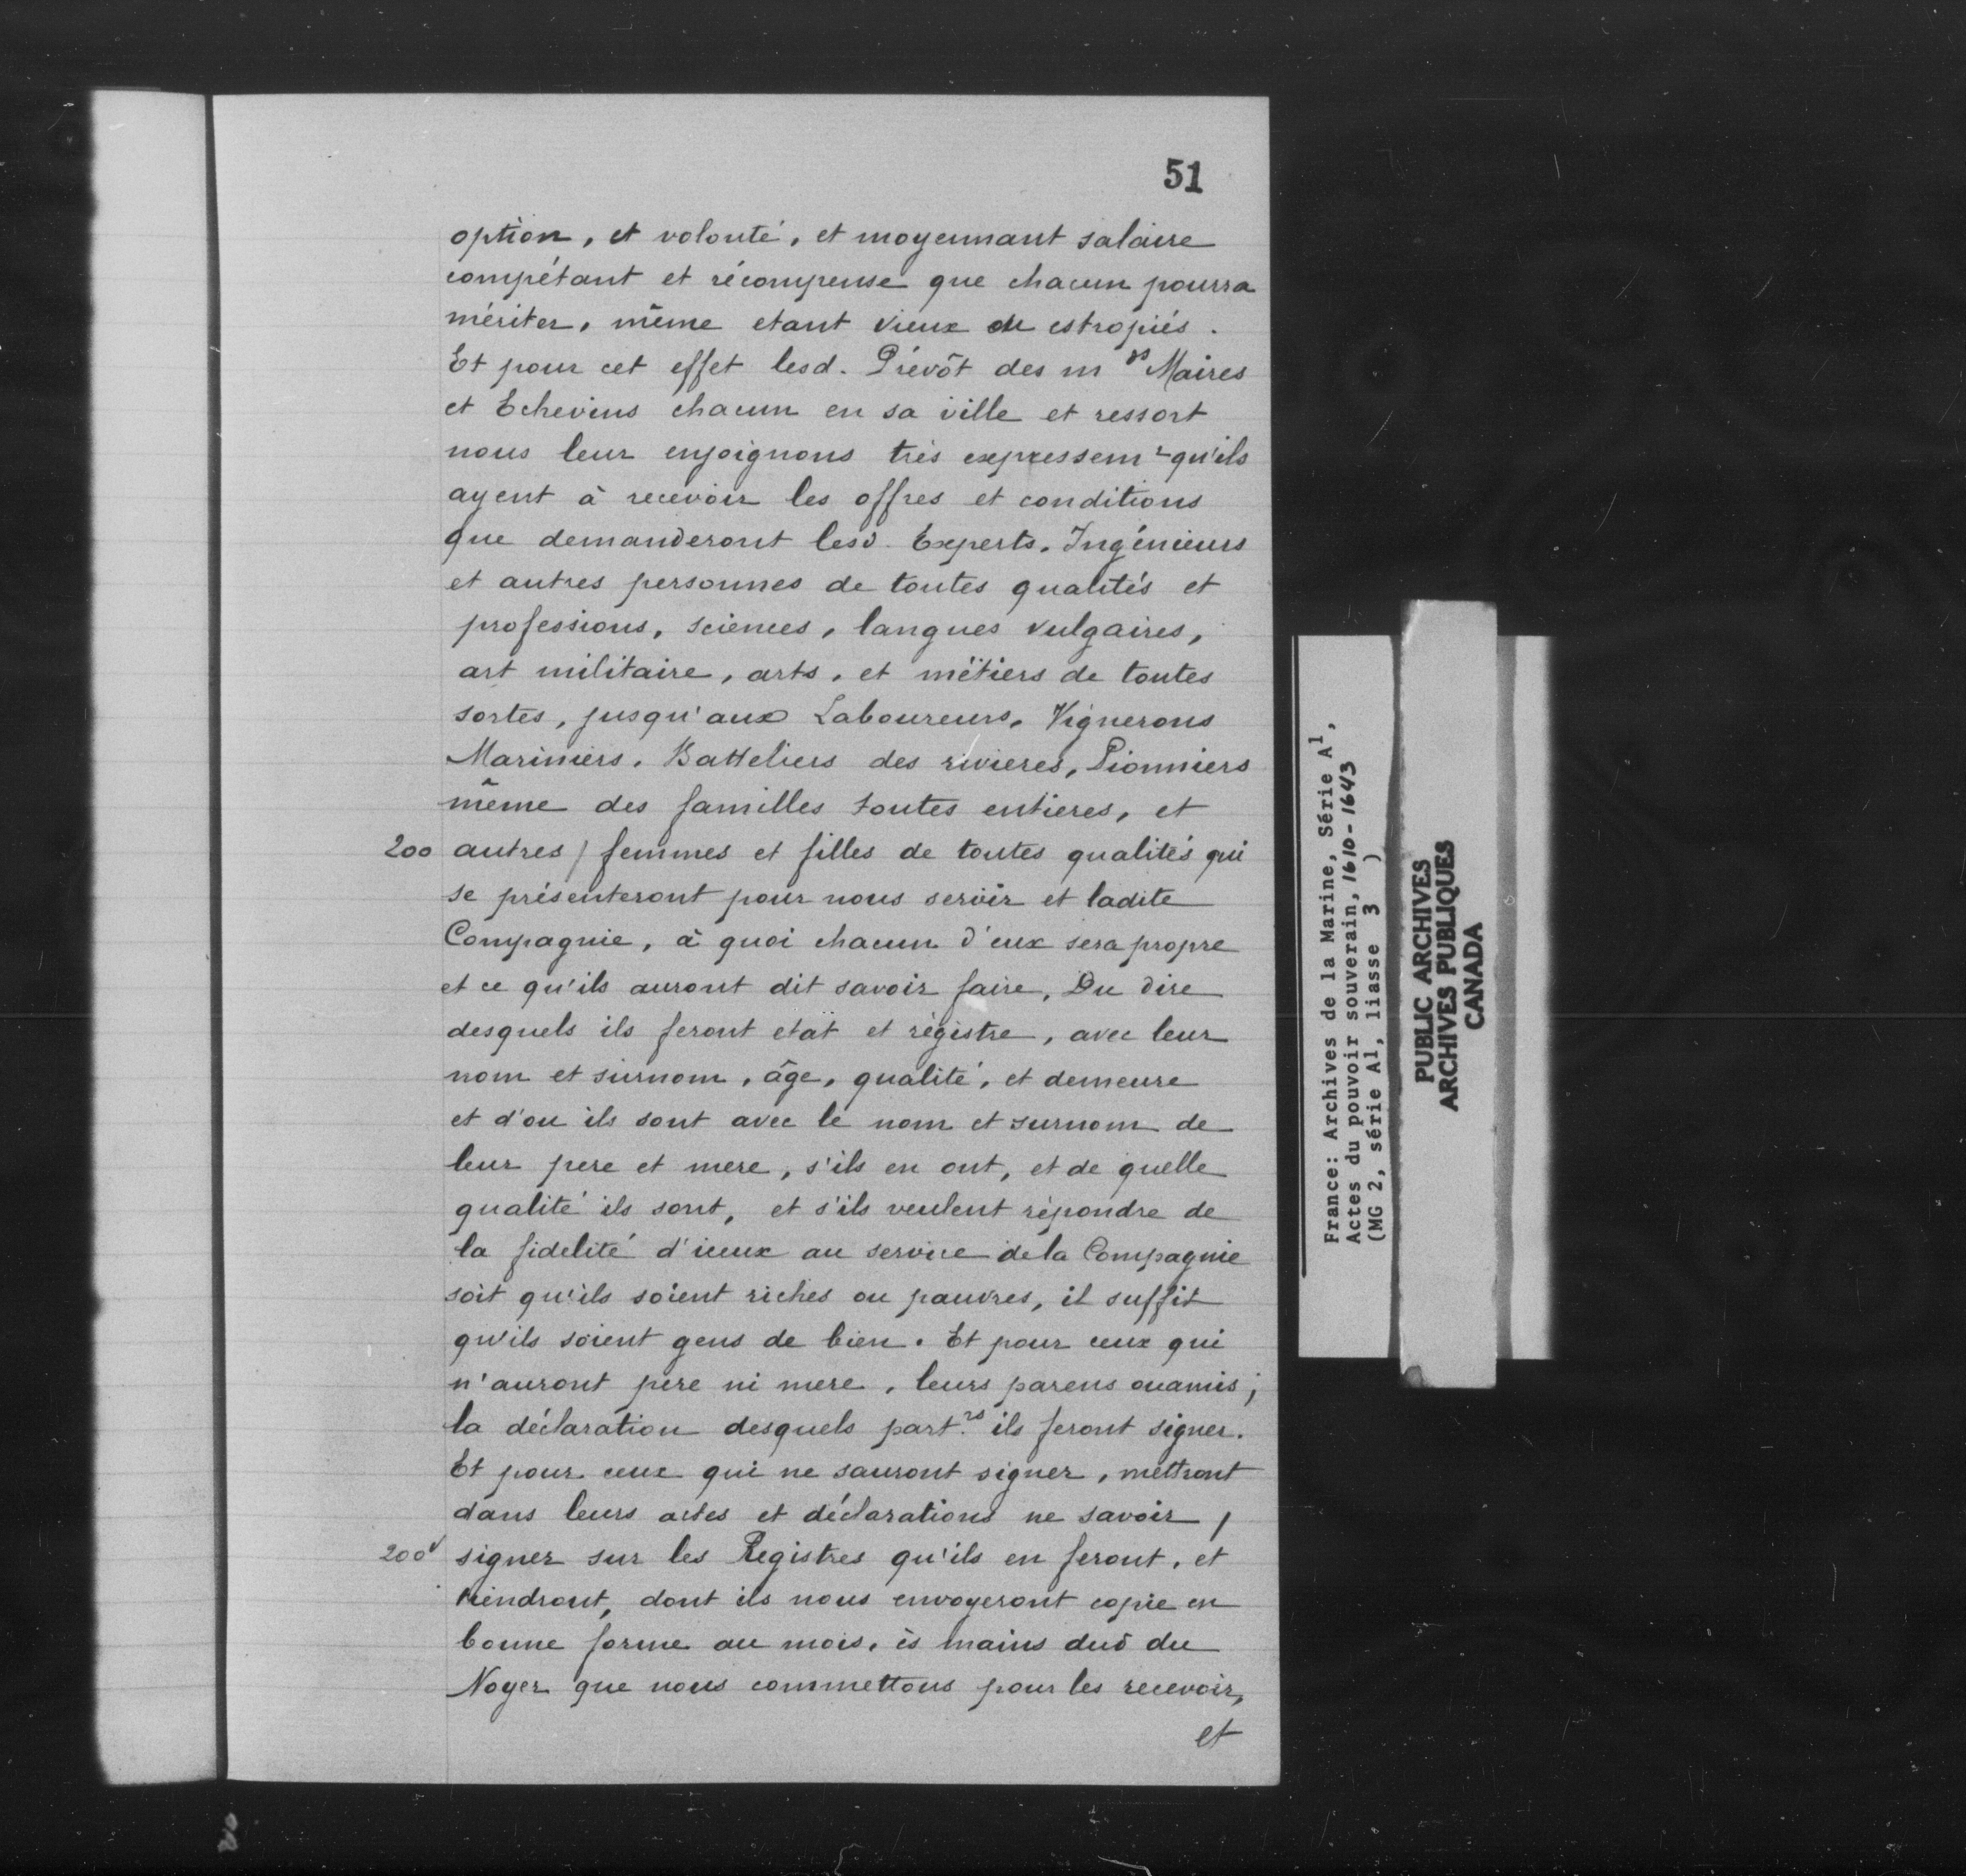 51
option, et volonté, et moyennant salaire
compétant et récompense que chacun pourra
mériter, même etant vieux ou estropiés.
Et pour cet effet lesd. Prévôt des m ds Maires
et Echevins chacun en sa ville et ressort
nous leur enjoignons très expressem t qu'ils
ayent à recevoir les offres et conditions
que demanderont lesd. Experts, Ingénieurs
et autres personnes de toutes qualités et
professions, sciences, langues vulgaires,
art militaire, arts, et métiers de toutes
sortes, jusqu'aux Laboureurs, Vignerons
Mariniers, Batteliers des rivieres, Pionniers
même des familles toutes entieres, et
200 autres / femmes et filles de toutes qualités qui
se présenteront pour nous servir et ladite
Compagnie, à quoi chacun d'eux sera propre
et ce qu'ils auront dit savoir faire, Du dire
desquels ils feront etat et régistre, avec leur
nom et surnom, âge, qualité, et demeure
et d'ou ils sont avec le nom et surnom de
leur pere et mere, s'ils en ont, et de quelle
qualité ils sont, et s'ils veulent répondre de
la fidelité d'iceux au service de la Compagnie
soit qu'ils soient riches ou pauvres, il suffit
qu'ils soient gens de bien. Et pour ceux qui
n'auront père ni mere, leurs parens ou amis;
la déclaration desquels part. rs ils feront signer.
Et pour ceux qui ne sauront signer, mettront
dans leurs actes et déclarations ne savoir /
200v signer sur les Registres qu'ils en feront, et
tiendront, dont ils nous envoyeront copie en
bonne forme au mois, ès mains dud du
Noyer que nous commettons pour les recevoir,
et
France: Archives de la Marine, Série A1,
Actes du pouvoir souverain, 1610-1643
(MG 2, série A1, liasse 3 )
PUBLIC ARCHIVES
ARCHIVES PUBLIQUES
CANADA